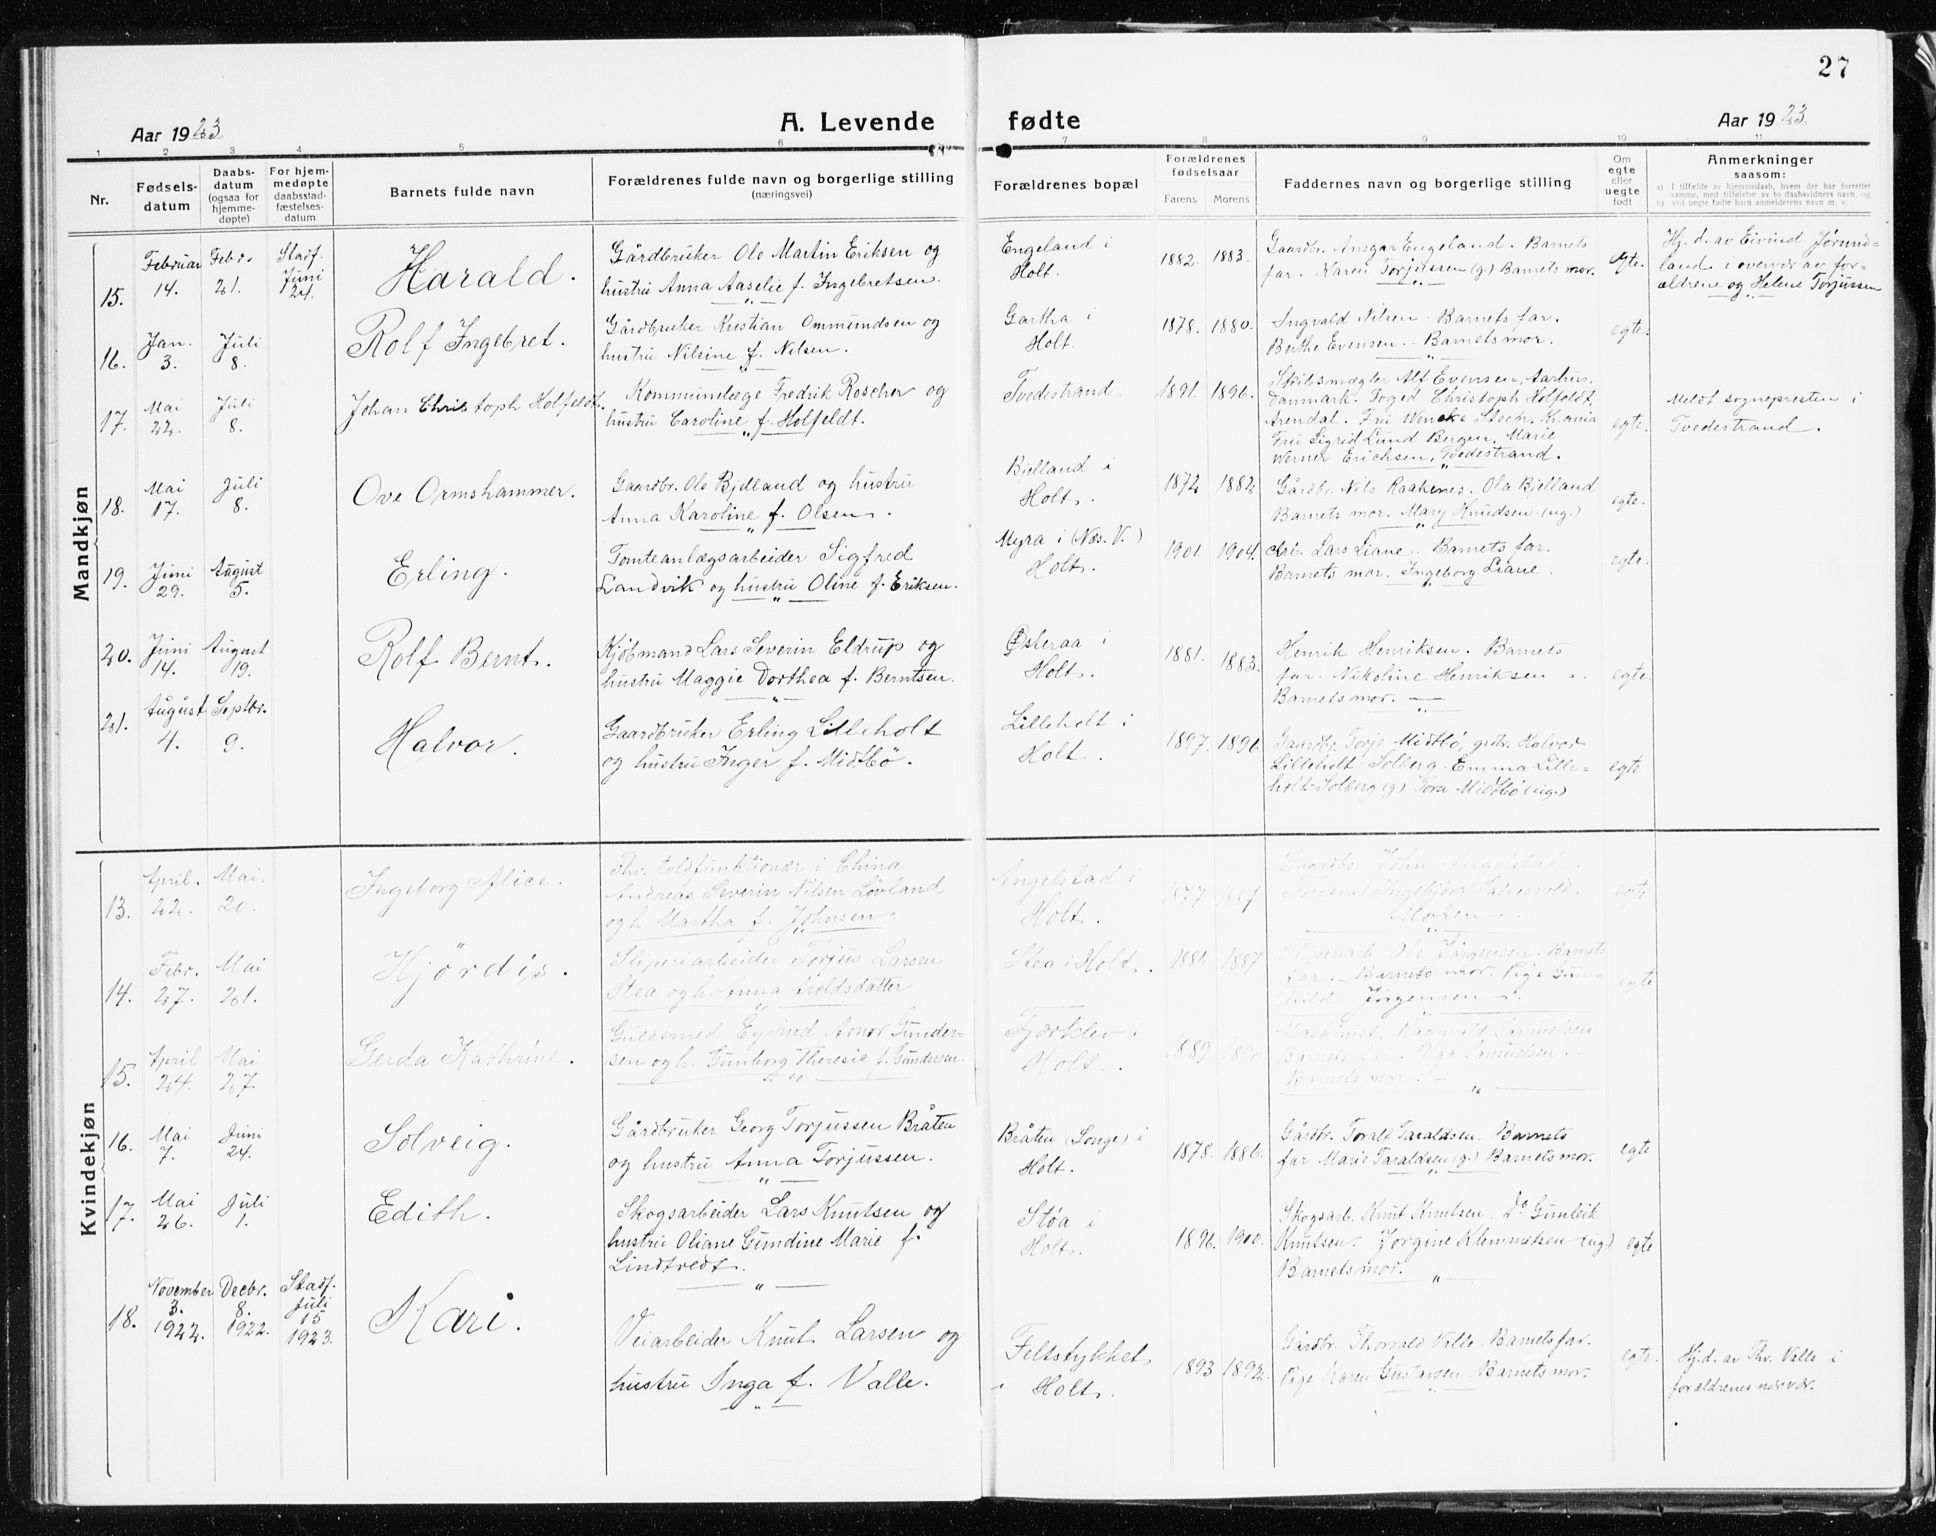 27
Aar 1923.
A. Levende fødte
Aar 1923.
1 2 3 4 5 6 7 8 9 10 11
Nr.
Fødselsdatum
Daabsdatum (ogsaa for hjemmedøpte)
For hjemmedøpte daabsstadfæstelsesdatum
Barnets fulde navn
Forældrenes fulde navn og borgerlige stilling
(næringsvei)
Forældrenes bopæl
Forældrenes fødselsaar
Farens Morens
Faddernes navn og borgerlige stilling
Om egte eller uegte født
Anmerkninger
saasom:
a) I tilfælde av hjemmedaab, hvem der har forrettet
samme, med tilføielse av to daabsvidners navn, og
b) ved uegte fødte barn anmelderens navn m. v.
Mandkjøn
15. Februar 14. Febr. 21. Stadf. Juni 24.
Harald.
Gårdbruker Ole Martin Eriksen og
hustru Anna Aaselie f. Ingebretsen.
Engeland i
Holt.
1882. 1883.
Gaardbr. Ansgar Engeland. Barnets
far. Karen Torjussen (g.) Barnets mor.
egte.
Hj. d. av Eivind Jørund-
land i overvær av for-
ældrene og Helene Torjussen
16. Jan. 3. Juli 8.
Rolf Ingebret.
Gårdbruker Kristian Ommundsen og
hustru Nilsine f. Nilsen.
Gartha i
Holt.
1878. 1880.
Ingvald Nilsen. Barnets far.
Berthe Evensen. Barnets mor.
egte.
17. Mai 22. Juli 8.
Johan Christoph Holfeldt.
Kommunelæge Fredrik Roscher og
hustru Caroline f. Holfeldt.
Tvedestrand.
1891. 1896.
Skibsmægler Alf Evensen, Aarhus,
Danmark. Foged Christoph Holfeldt,
Arendal. Fru Wencke Steen, Kr.ania
Fru Sigrid Lund Bergen. Marie
Werner Erichsen, Tvedestrand.
egte.
Meldt sognepresten i
Tvedestrand.
18. Mai 17. Juli 8.
Ove Ormshammer.
Gaardbr. Ole Bjelland og hustru
Anna Karoline f. Olsen.
Bjelland i
Holt.
1872 1882
Gårdbr. Nils Raakenes. Ola Bjelland
Barnets mor. Mary Knudsen (ug.)
egte.
19. Juni 29. August 5.
Erling.
Tomteanlægsarbeider Sigfred
Landvik og hustru Oline f. Eriksen.
Myra i (Næs. V.)
Holt.
1901. 1904.
Lars Liane. Barnets far.
Barnets mor. Ingeborg Liane.
egte.
20. Juni 14. August 19.
Rolf Bernt.
Kjøbmand Lars Severin Eldrup og
hustru Maggie Dorthea f. Berntsen.
Østeraa i
Holt.
1881. 1883.
Henrik Henriksen. Barnets
far. Nikoline Henriksen.
Barnets mor.
egte.
21. August 4. Septbr. 9.
Halvor.
Gaardbruker Erling Lilleholt
og hustru Inger f. Midtbö.
Lilleholt i
Holt.
1897. 1896.
Gaardbr. Torje Midtbö, grdbr. Halvor
Lilleholt-Solberg. Emma Lille-
holt-Solberg (g) Tora Midtbö (ug.)
egte
Kvindekjøn
13. April. 22. Mai. 20.
Ingeborg Alice.
Fhv. toldfunktionær i China
Andreas Severin Nilsen Lövland
og h. Martha f. Johnsen.
Angelstad i
Holt.
1877 1887
Gaardbr. John Angelstad
egte
14. Febr. 27. Mai 21.
Hjördis.
Sliperiarbeider Torjus Larsen
Stea og h. Anna Aroldsdatter
Stea i Holt.
1881. 1887
Sliperiarb. Ole Jörgensen. Barnets
far. Barnets mor. Pige Gun-
hild Jörgensen.
egte
15. April 24. Mai 27.
Gerda Kathrine.
Guldsmed Eyvind Arnor Gunder-
sen og h. Gunborg Theresie f. Gundersen.
Fjærklev i
Holt.
1889 1890
Maskinist Ragnvald Samuelsen
Barnets far. Olga Samuelsen.
Barnets mor.
16. Mai 7. Juni 24.
Solveig.
Gårdbruker Georg Torjussen Bråten
og hustru Anna Torjussen.
Bråten (Songe) i
Holt.
1878. 1886.
Gårdbr. Toralf Taraldsen. Barnets
far Marie Taraldsen (g.) Barnets mor.
egte
17. Mai 26. Juli 1.
Edith.
Skogsarbeider Lars Knutsen og
hustru Oliane Gundine Marie f.
Lindtvedt.
Støa i
Holt.
1896. 1900.
Skogsarb. Knut Knutsen. Do Gunleik
Knutsen. Jorgine Klemmetsen (ug)
Barnets mor.
egte
18. November 3. 1922. Decbr. 8. 1922. Stadf. Juli 15 1923.
Kari.
Veiarbeider Knut Larsen og
hustru Inga f. Valle.
Feltstykket
i Holt.
1893 1892.
Gårdbr. Thorvald Valle. Barnets far.
Pige Karen Gustavsen. Barnets mor.
egte.
Hj. d. av Thv. Valle i
forældrenes nærvær.